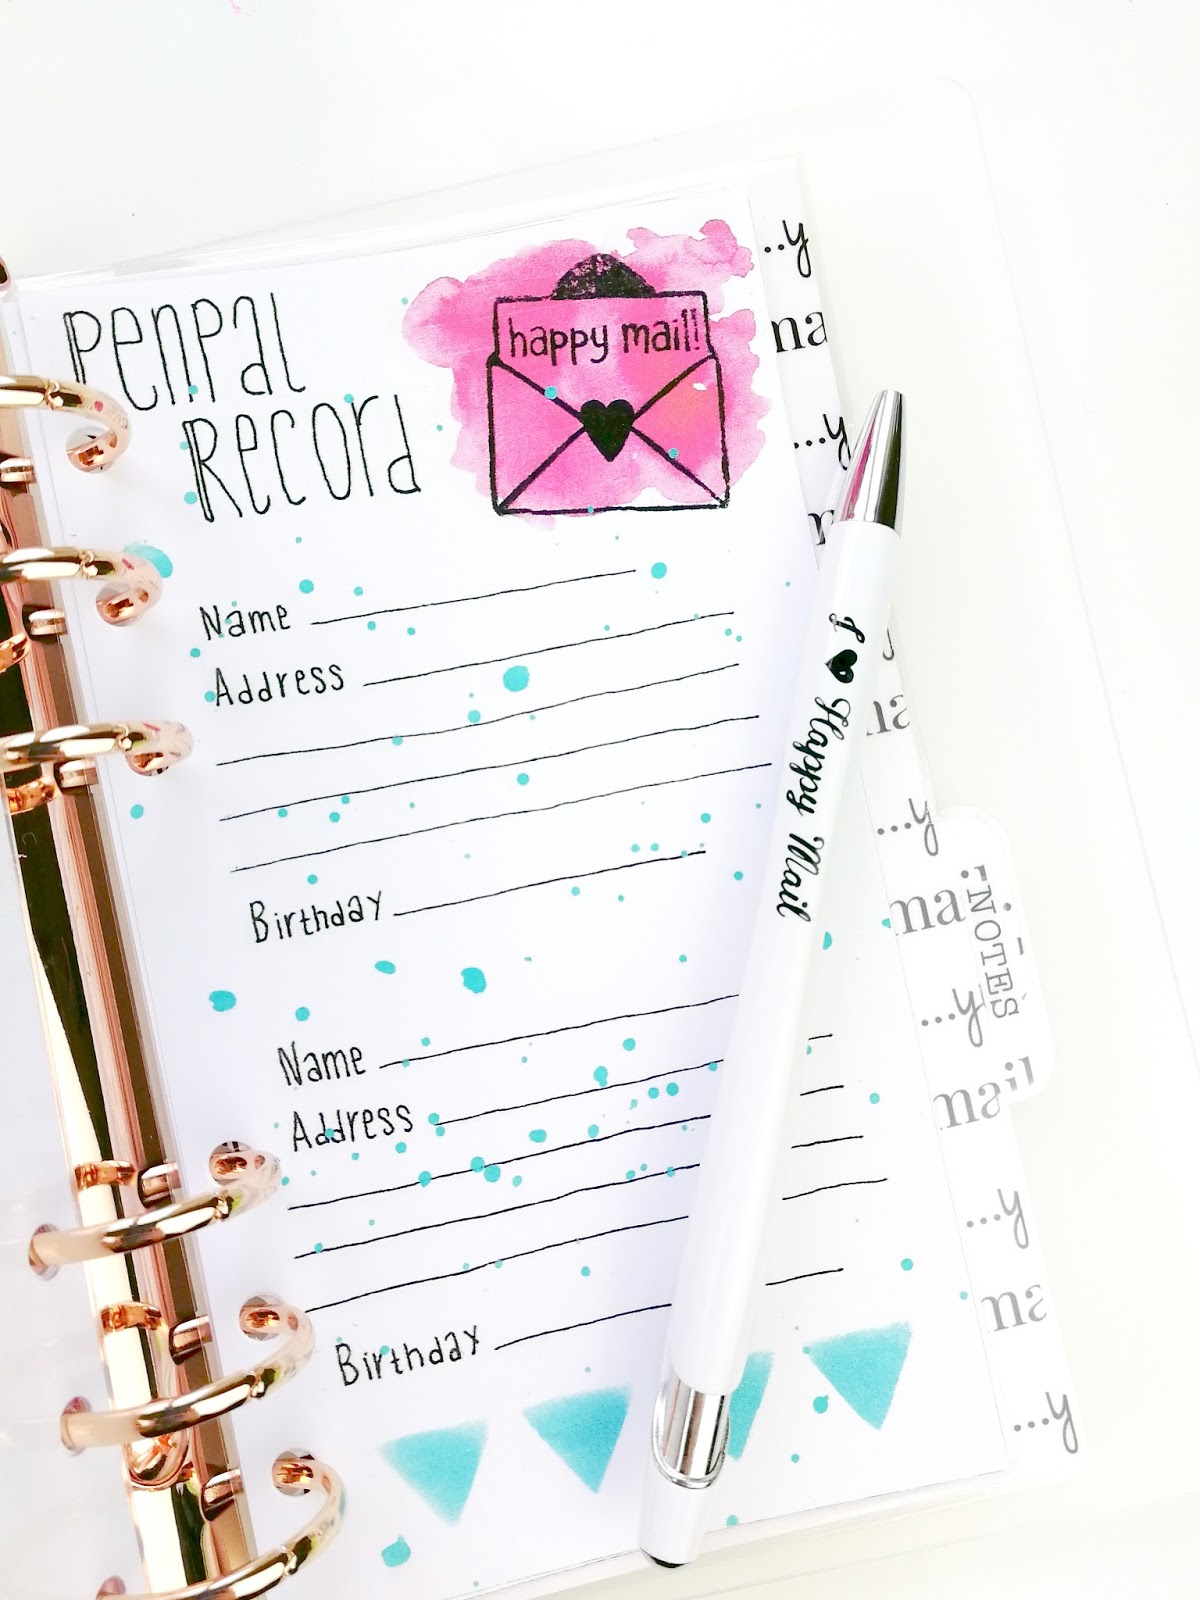 PenPal
Record
happy mail!
Name
Address
Birthday
Name
Address
Birthday
I ♥ Happy Mail
NOTES
...y
ma
...y
m
ma
...y
mai
...y
mail
...y
ma
...y